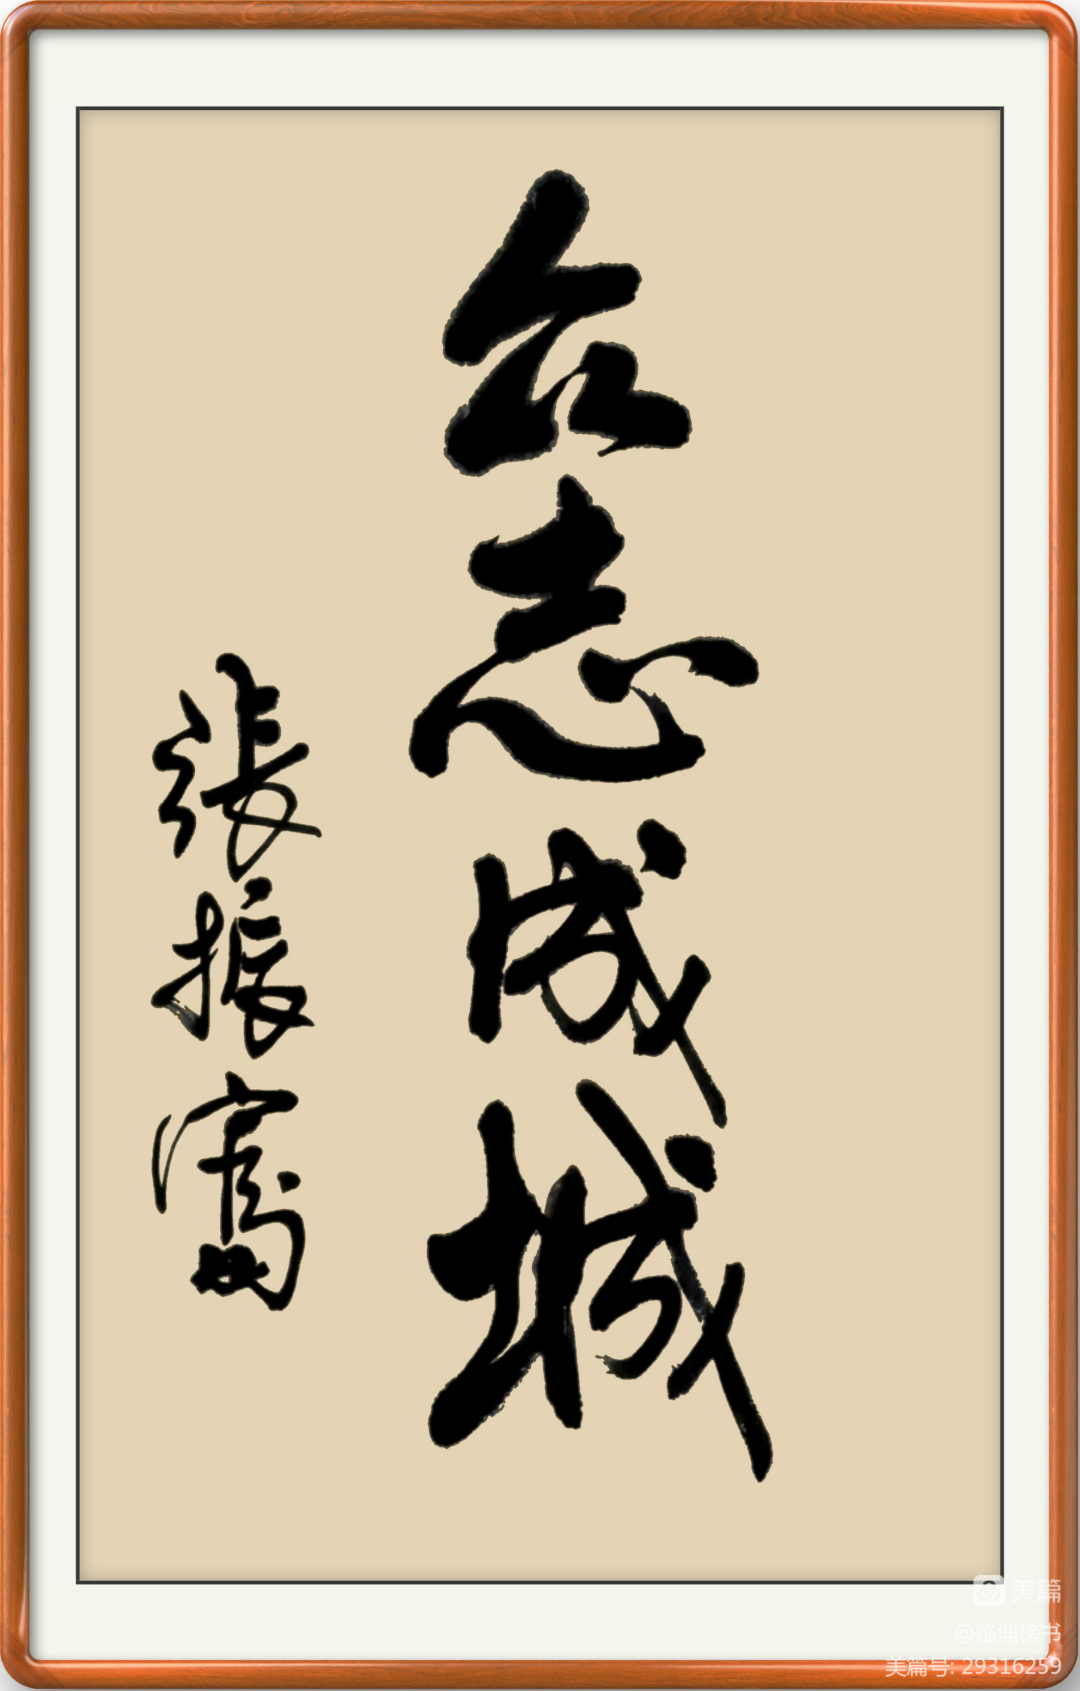 众志成城
張振富
美篇
@临淄榜书
美篇号: 29316259